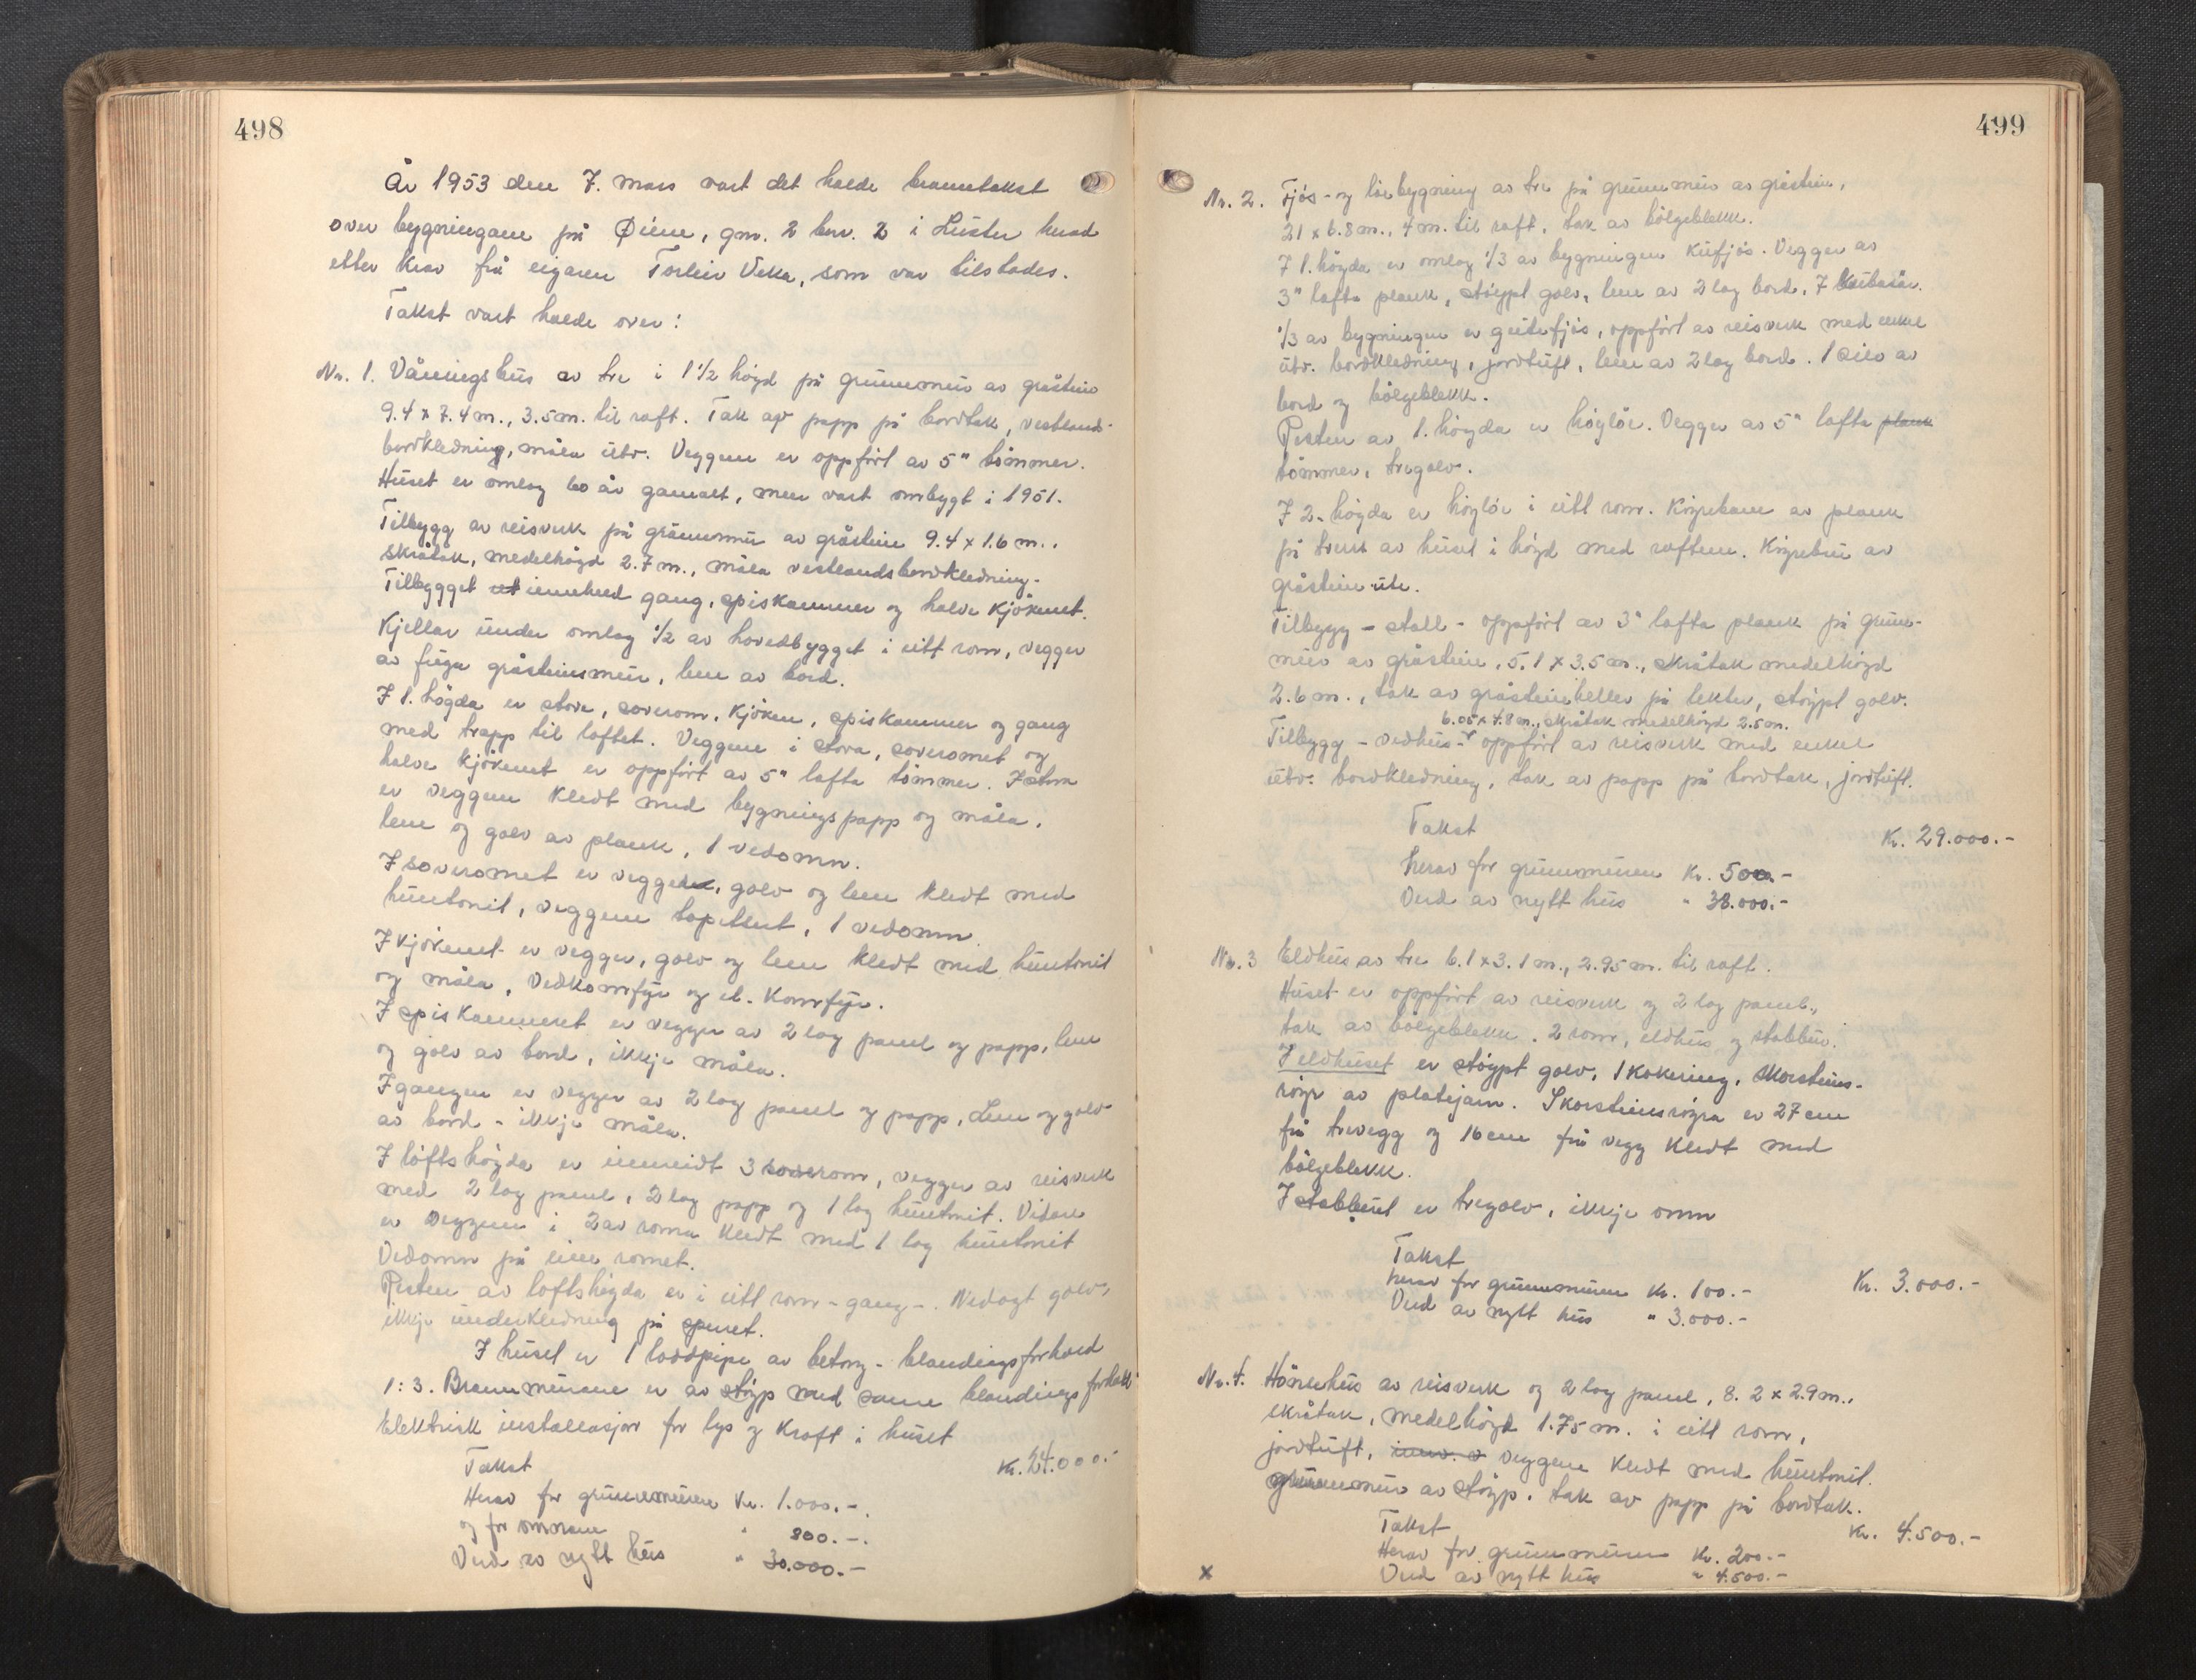 498
År 1953 den 7. mars vart det halde branntakst
over bygningane på Øiene, gnr. 2 bnr. 2 i Luster herad
etter krav frå eigaren Torleiv Veka, som var tilstades.
Takst vart halde over:
Nr. 1. Våningshus av tre i 1 1/2 høgd på grunnmur av gråstein
9.4 x 7.4 m., 3.5 m. til raft. Tak av papp på bordtak, vestlands-
bordkledning, måla utv. Veggene er oppført av 5" tømmer.
Huset er omlag 60 år gamalt, men vart ombygt i 1951.
Tilbygg av reisverk på grunnmur av gråstein 9.4 x 1.6 m.,
skråtak, medelhøgd 2.7 m., måla vestlandsbordkledning.
Tilbygget inneheld gang, spiskammer og halve kjøkenet.
Kjellar under omlag 1/2 av hovedbygget i eitt rom, vegger
av fuga gråsteinsmur, lem av bord.
I 1. høgda er stove, soverom, kjøken, spiskammer og gang
med trapp til loftet. Veggene i stova, soveromet og
halve kjøkenet er oppført av 5" lafta tømmer. I stova
er veggene kledt med bygningspapp og måla,
lem og golv av plank, 1 vedomn.
I soveromet er veggene, golv og lem kledt med
huntonit, veggene tapetsert, 1 vedomn.
I kjøkenet er vegger, golv og lem kledt med huntonit
og måla, vedkomfyr og el. komfyr.
I spiskammeret er vegger av 2 lag panel og papp, lem
og golv av bord, ikkje måla.
I gangen er vegger av 2 lag panel og papp, Lem og golv
av bord - ikkje måla.
I loftshøgda er innreidt 3 soverom, vegger av reisverk
med 2 lag panel, 2 lag papp og 1 lag huntonit. Vidare
er veggene i 2 av roma kledt med 1 lag huntonit
Vedomn på eine romet.
Resten av loftshøgda er i eitt rom - gang -. Nedlagt golv,
ikkje underkledning på sperret.
I huset er 1 loddpipe av betong - blandingsforhold
1:3. Brannmurane er av støyp med same blandingsforhold
Elektrisk installasjon for lys og kraft i huset
Takst Kr. 24.000.-
Herav for grunnmuren Kr. 1.000.-
og for omnane " 800.-
Verd av nytt hus " 30.000.-
499
Nr. 2. Fjøs- og løebygning av tre på grunnmur av gråstein,
21 x 6.8 m., 4 m. til raft, tak av bølgeblekk.
I 1. høgda er omlag 1/3 av bygningen kufjøs. Vegger av
3" lafta plank, støypt golv, lem av 2 lag bord, 7 kubåsar.
1/3 av bygningen er geitefjøs, oppført av reisverk med enkel
utv. bordkledning, jordtuft, lem av 2 lag bord. 1 silo av
bord og bølgeblekk.
Resten av 1. høgda er høyløe. Vegger av 5" lafta plank
tømmer, tregolv.
I 2. høgda er høyløe i eitt rom. Køyrebane av plank
på tvers av huset i høgd med raftene. Køyrebru av
gråstein ute.
Tilbygg - stall - oppført av 3" lafta plank på grunn-
mur av gråstein, 5.1 x 3.5 m., skråtak medelhøgd
2.6 m., tak av gråsteinheller på lekter, støypt golv.
6.05 x 4.8 m., skråtak medelhøgd 2.5 m.
Tilbygg - vedhus - oppført av reisverk med enkel
utv. bordkledning, tak av papp på bordtak, jordtuft.
Takst Kr. 29.000.-
herav for grunnmuren Kr. 500.-
Verd av nytt hus " 38.000.-
Nr. 3 Eldhus av tre 6.1 x 3.1 m., 2.95 m. til raft.
Huset er oppført av reisverk og 2 lag panel,
tak av bølgeblekk. 2 rom, eldhus og stabbur.
I eldhuset er støypt golv, 1 kokering, skorsteins-
røyr av platejarn. Skorsteinsrøyra er 27 cm
frå trevegg og 16 cm frå vegg kledt med
bølgeblekk.
I stabburet er tregolv, ikkje omn
Takst Kr. 3.000.-
herav for grunnmuren Kr. 100.-
Verd av nytt hus " 3.000.-
Nr. 4. Hønsehus av reisverk og 2 lag panel, 8.2 x 2.9 m.,
skråtak, medelhøgd 1.75 m. i eitt rom,
jordtuft, veggene kledt med huntonit.
grunnmur av støyp, tak av papp på bordtak.
Takst Kr. 4.500.-
Herav for grunnmuren Kr. 200.-
x Verd av nytt hus " 4.500.-